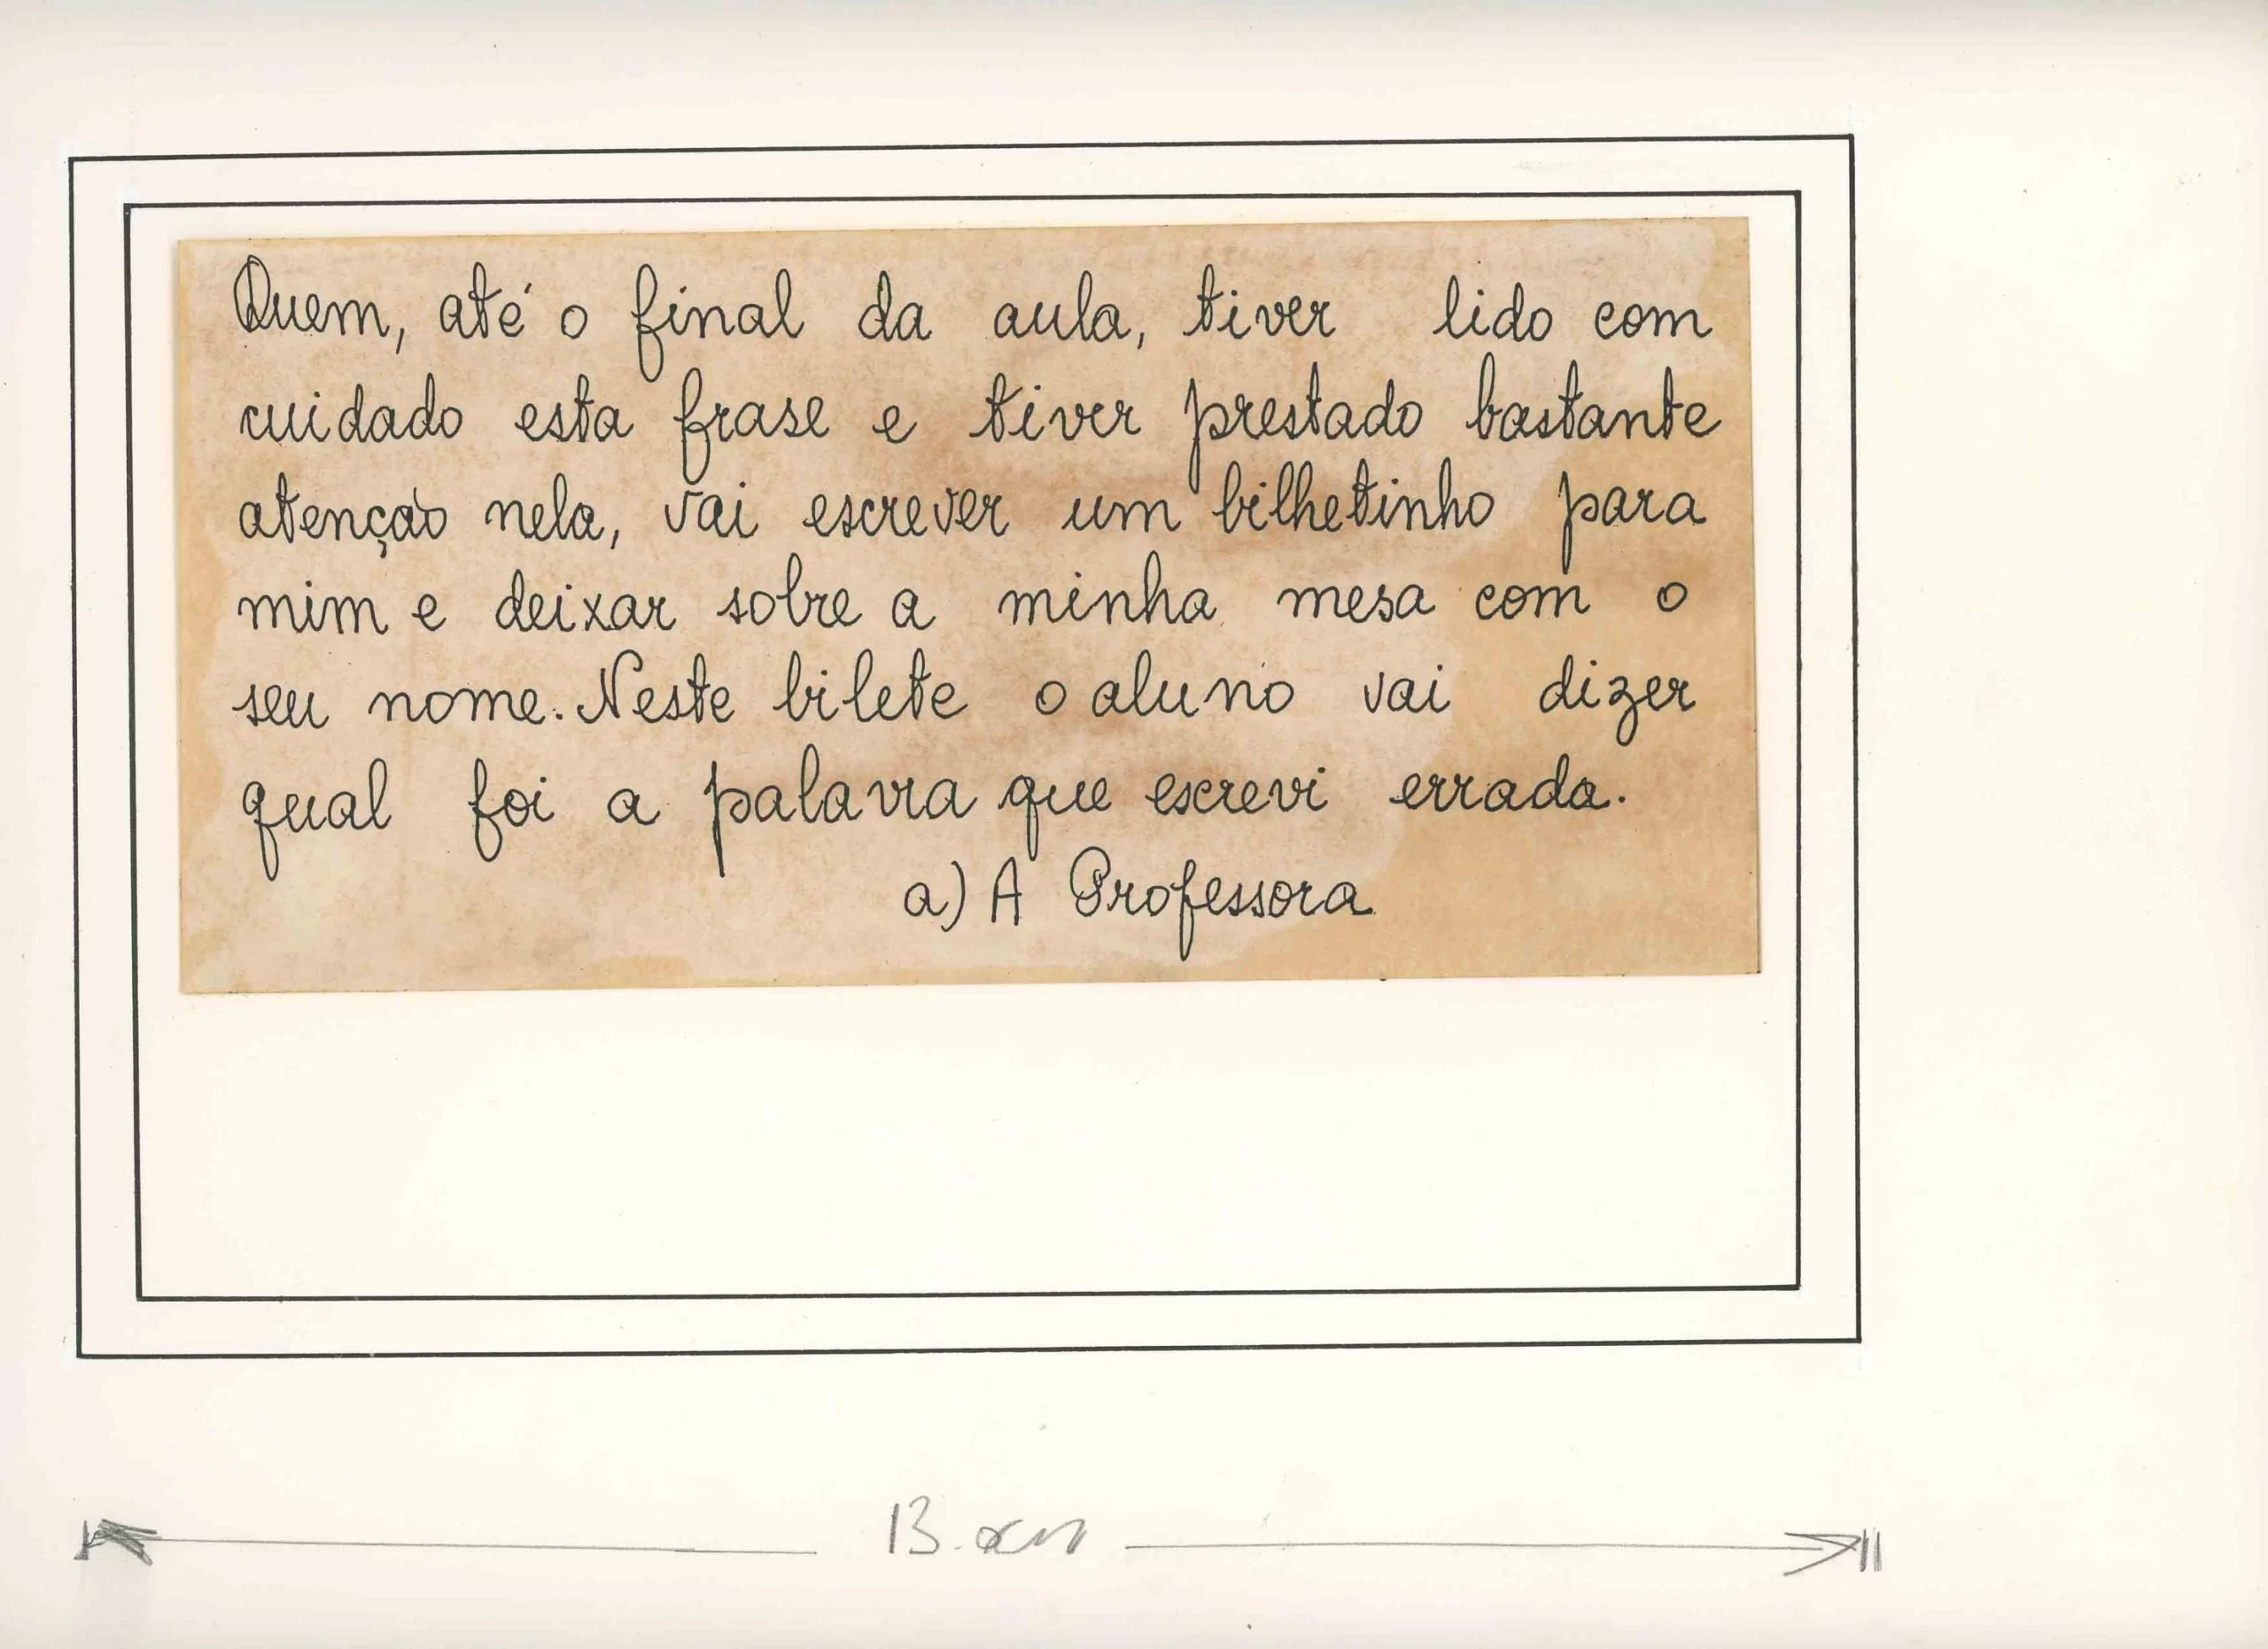 Quem, até o final da aula, tiver lido com
cuidado esta frase e tiver prestado bastante
atenção nela, vai escrever um bilhetinho para
mim e deixar sobre a minha mesa com o
seu nome. Neste bilete o aluno vai dizer
qual foi a palavra que escrevi errada.
a) A Professora
13. cm